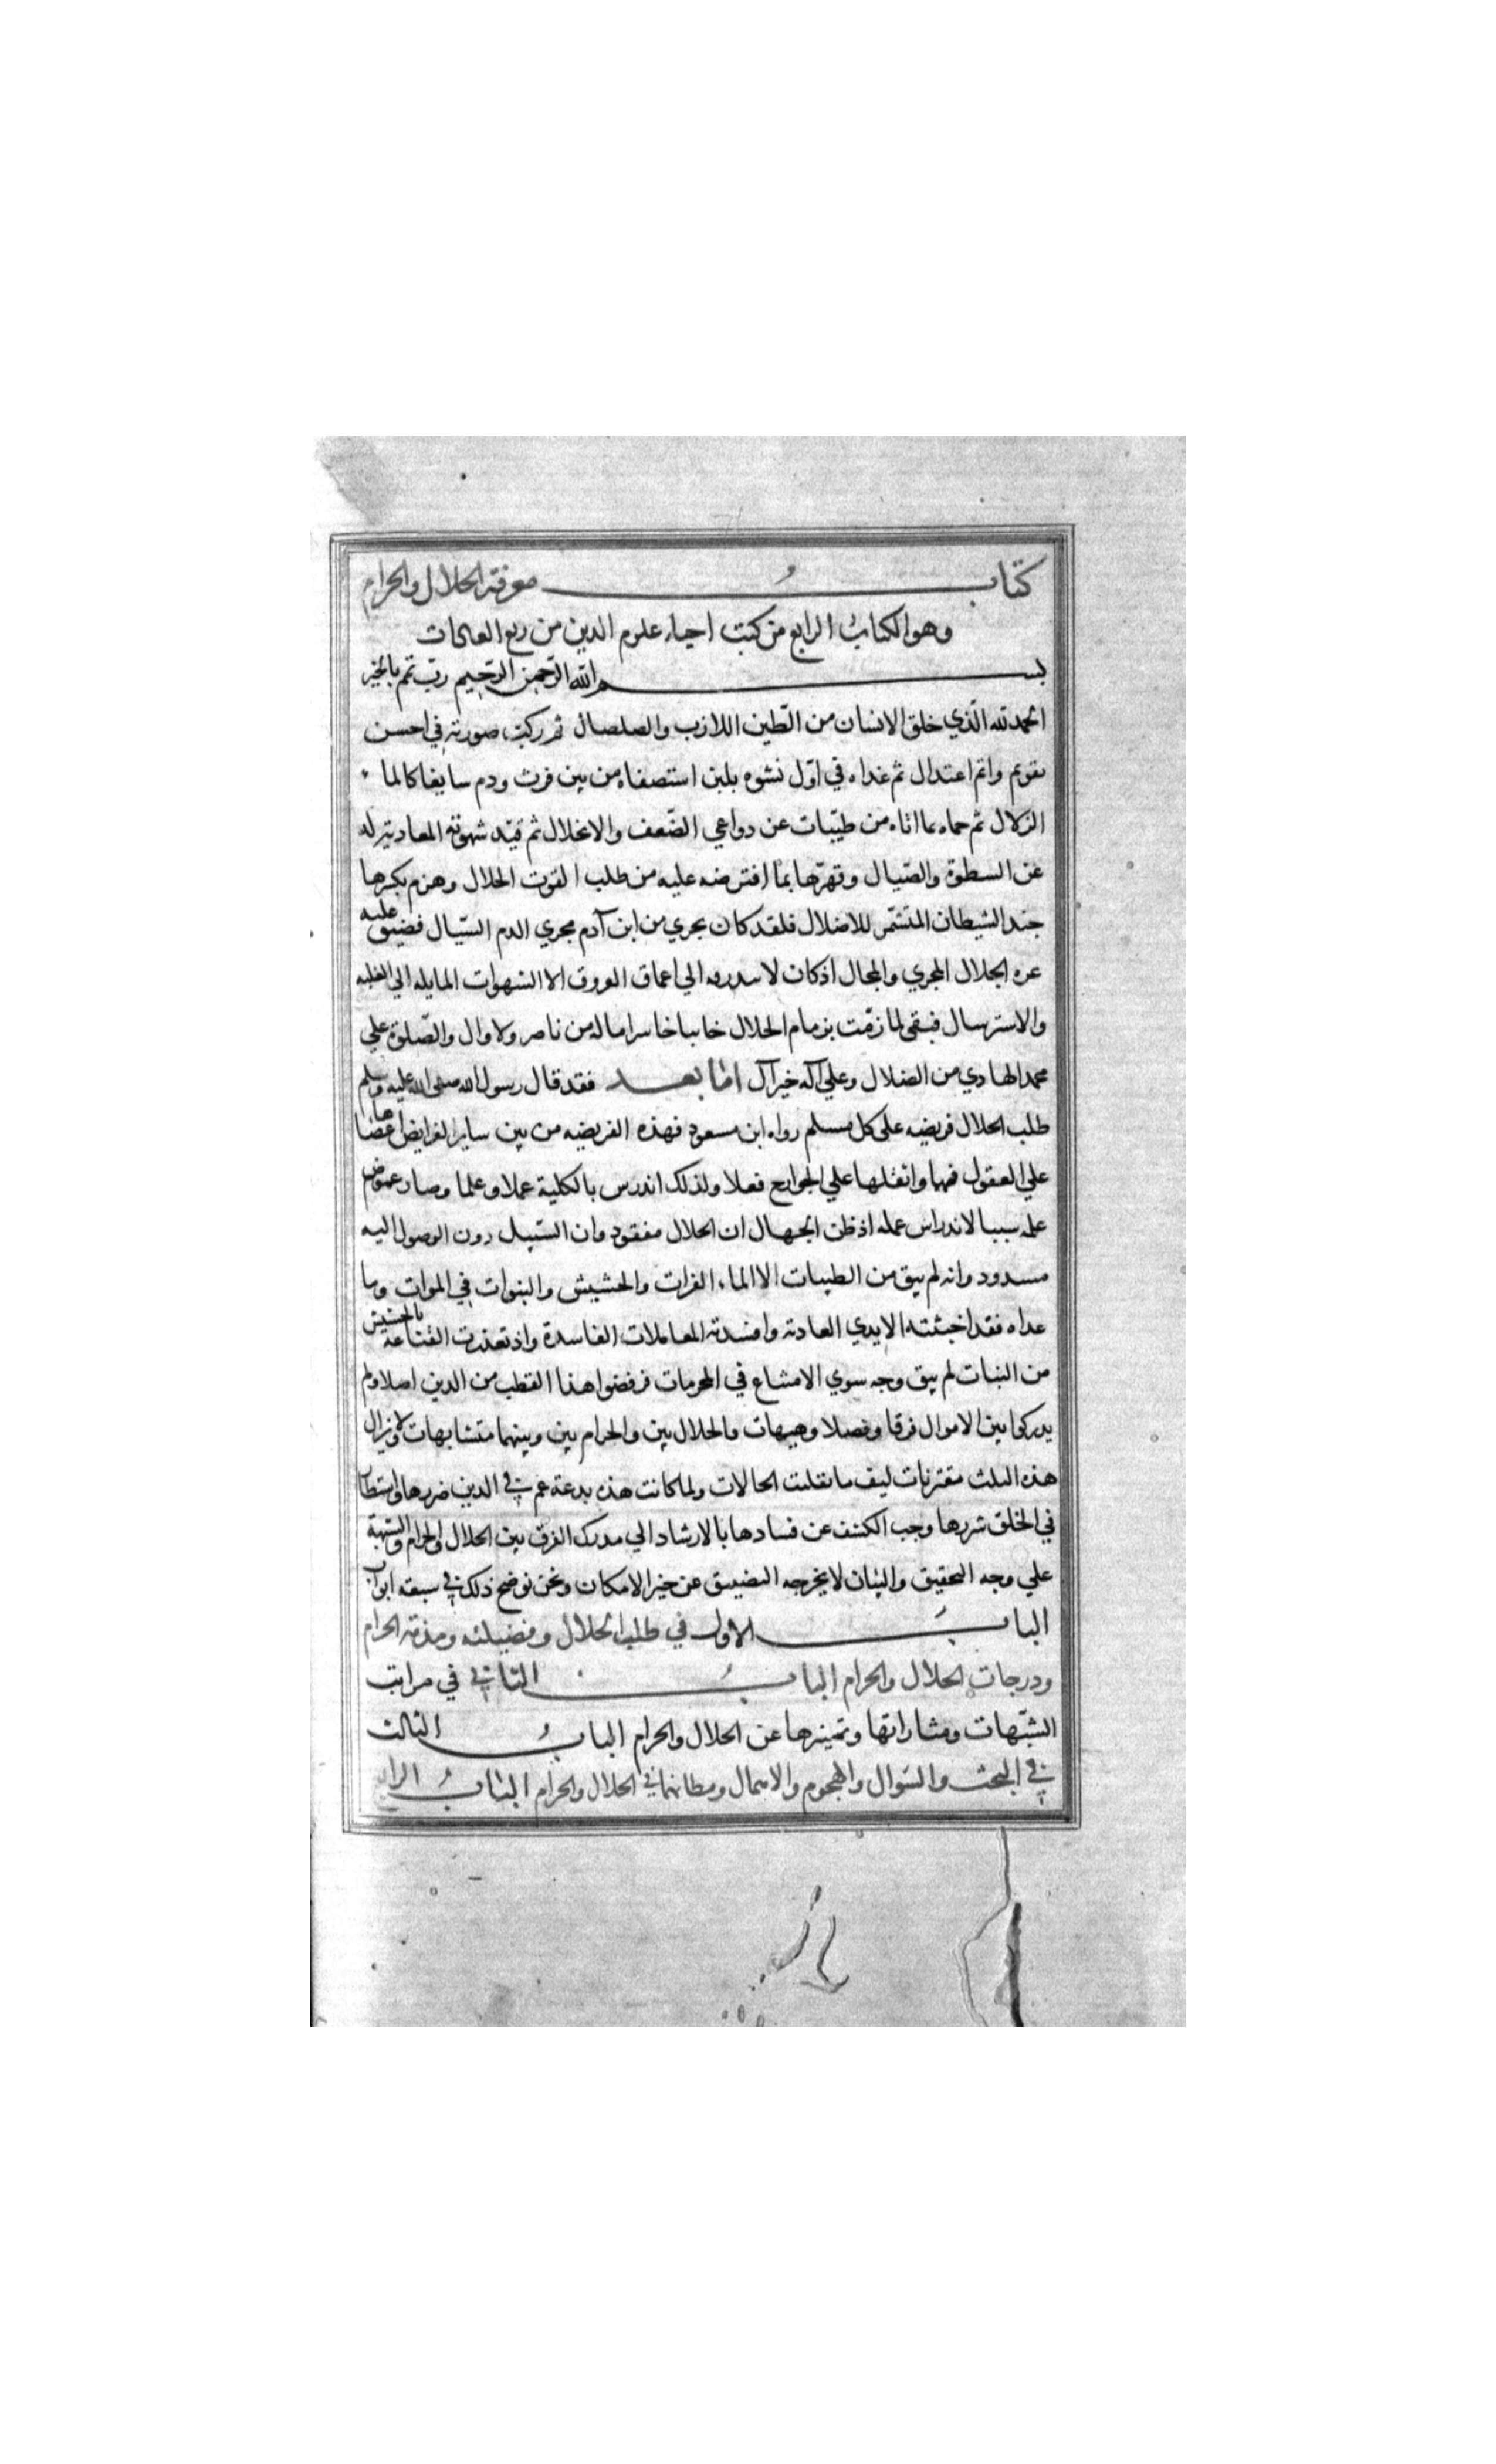 كتاب معرفة الحلال والحرام
وهو الكتاب الرابع من كتب احياء علوم الدين من ربع العادات
بسم الله الرحمن الرحيم رب تمم بالخير
الحمد لله الذي خلق الانسان من الطين اللازب والصلصال ثم ركب صورته في احسن
تقويم واتم اعتدال ثم غداه في اول نشوه بلبن استصفاه من بين فرث ودم سايغا كالما
الزلال ثم حماه بما اتاه من طيبات عن دواعي الضعف والانحلال ثم قيد شهوته المعادية له
عن السطوة والصيال وقهرها بما افترضه عليه من طلب القوت الحلال وهزم بكسرها
جند الشيطان المتشمر للاضلال فلقد كان يجري من ابن آدم مجري الدم السيال فضيق عليه
عزه الحلال المجري والمجال اذ كان لا الي اعماق العروق الا الشهوات المايله الي الغلبه
والاسترسال فبقي لما زمت بزمام الحلال خايبا خاسرا ماله من ناصر ولا وال والصلوة علي
محمد الهادي من الضلال وعلي آله خير آل اما بعد فقد قال رسول الله صلى الله عليه وسلم
طلب الحلال فريضه على كل مسلم رواه ابن مسعود فهذه الفريضه من بين ساير الفرايض اعصاها
علي العقول فهما واثقلها علي الجوارح فعلا ولذلك اندرس بالكلية عملا وعلما وصار غموض
علمه سببا لاندراس عمله اذ ظن الجهال ان الحلال مفقود وان السبيل دون الوصول اليه
مسدود وانه لم يبق من الطيبات الا الماء الفرات والحشيش والنبوات في الموات وما
عداه فقد اخبثته الايدي العادته وافسدته المعاملات الفاسدة واذ تعذرت القناعة بالحشيش
من النبات لم يبق وجه سوي الامشاع في المحرمات فرفضوا هذا القطب من الدين اصلا ولم
يدركوا بين الاموال فرقا وفصلا وهيهات فالحلال بين والحرام بين وبينهما متشابهات ولا يزال
هذه الثلث مقترنات كيف ما تقلبت الحالات ولما كانت هذه بدعة عم في الدين ضررها واستطار
في الخلق شررها وجب الكشف عن فسادها بالارشاد الي مدرك الفرق بين الحلال والحرام والشبهة
علي وجه التحقيق والبيان لا يخرجه التضييق عن حيز الامكان ونحن نوضح ذلك في سبعة ابواب
الباب الاول في طلب الحلال وفضيلته ومذمة الحرام
ودرجات الحلال والحرام الباب الثاني في مراتب
الشبهات ومثاراتها وتميزها عن الحلال والحرام الباب الثالث
في البحث والسوال والهجوم والاهمال ومظانهما في الحلال والحرام الباب الرابع